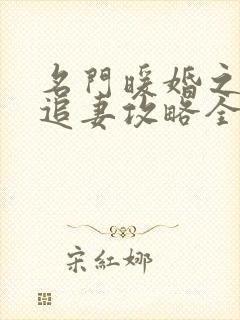 名門暖婚之
追妻攻略全
宋紅娜